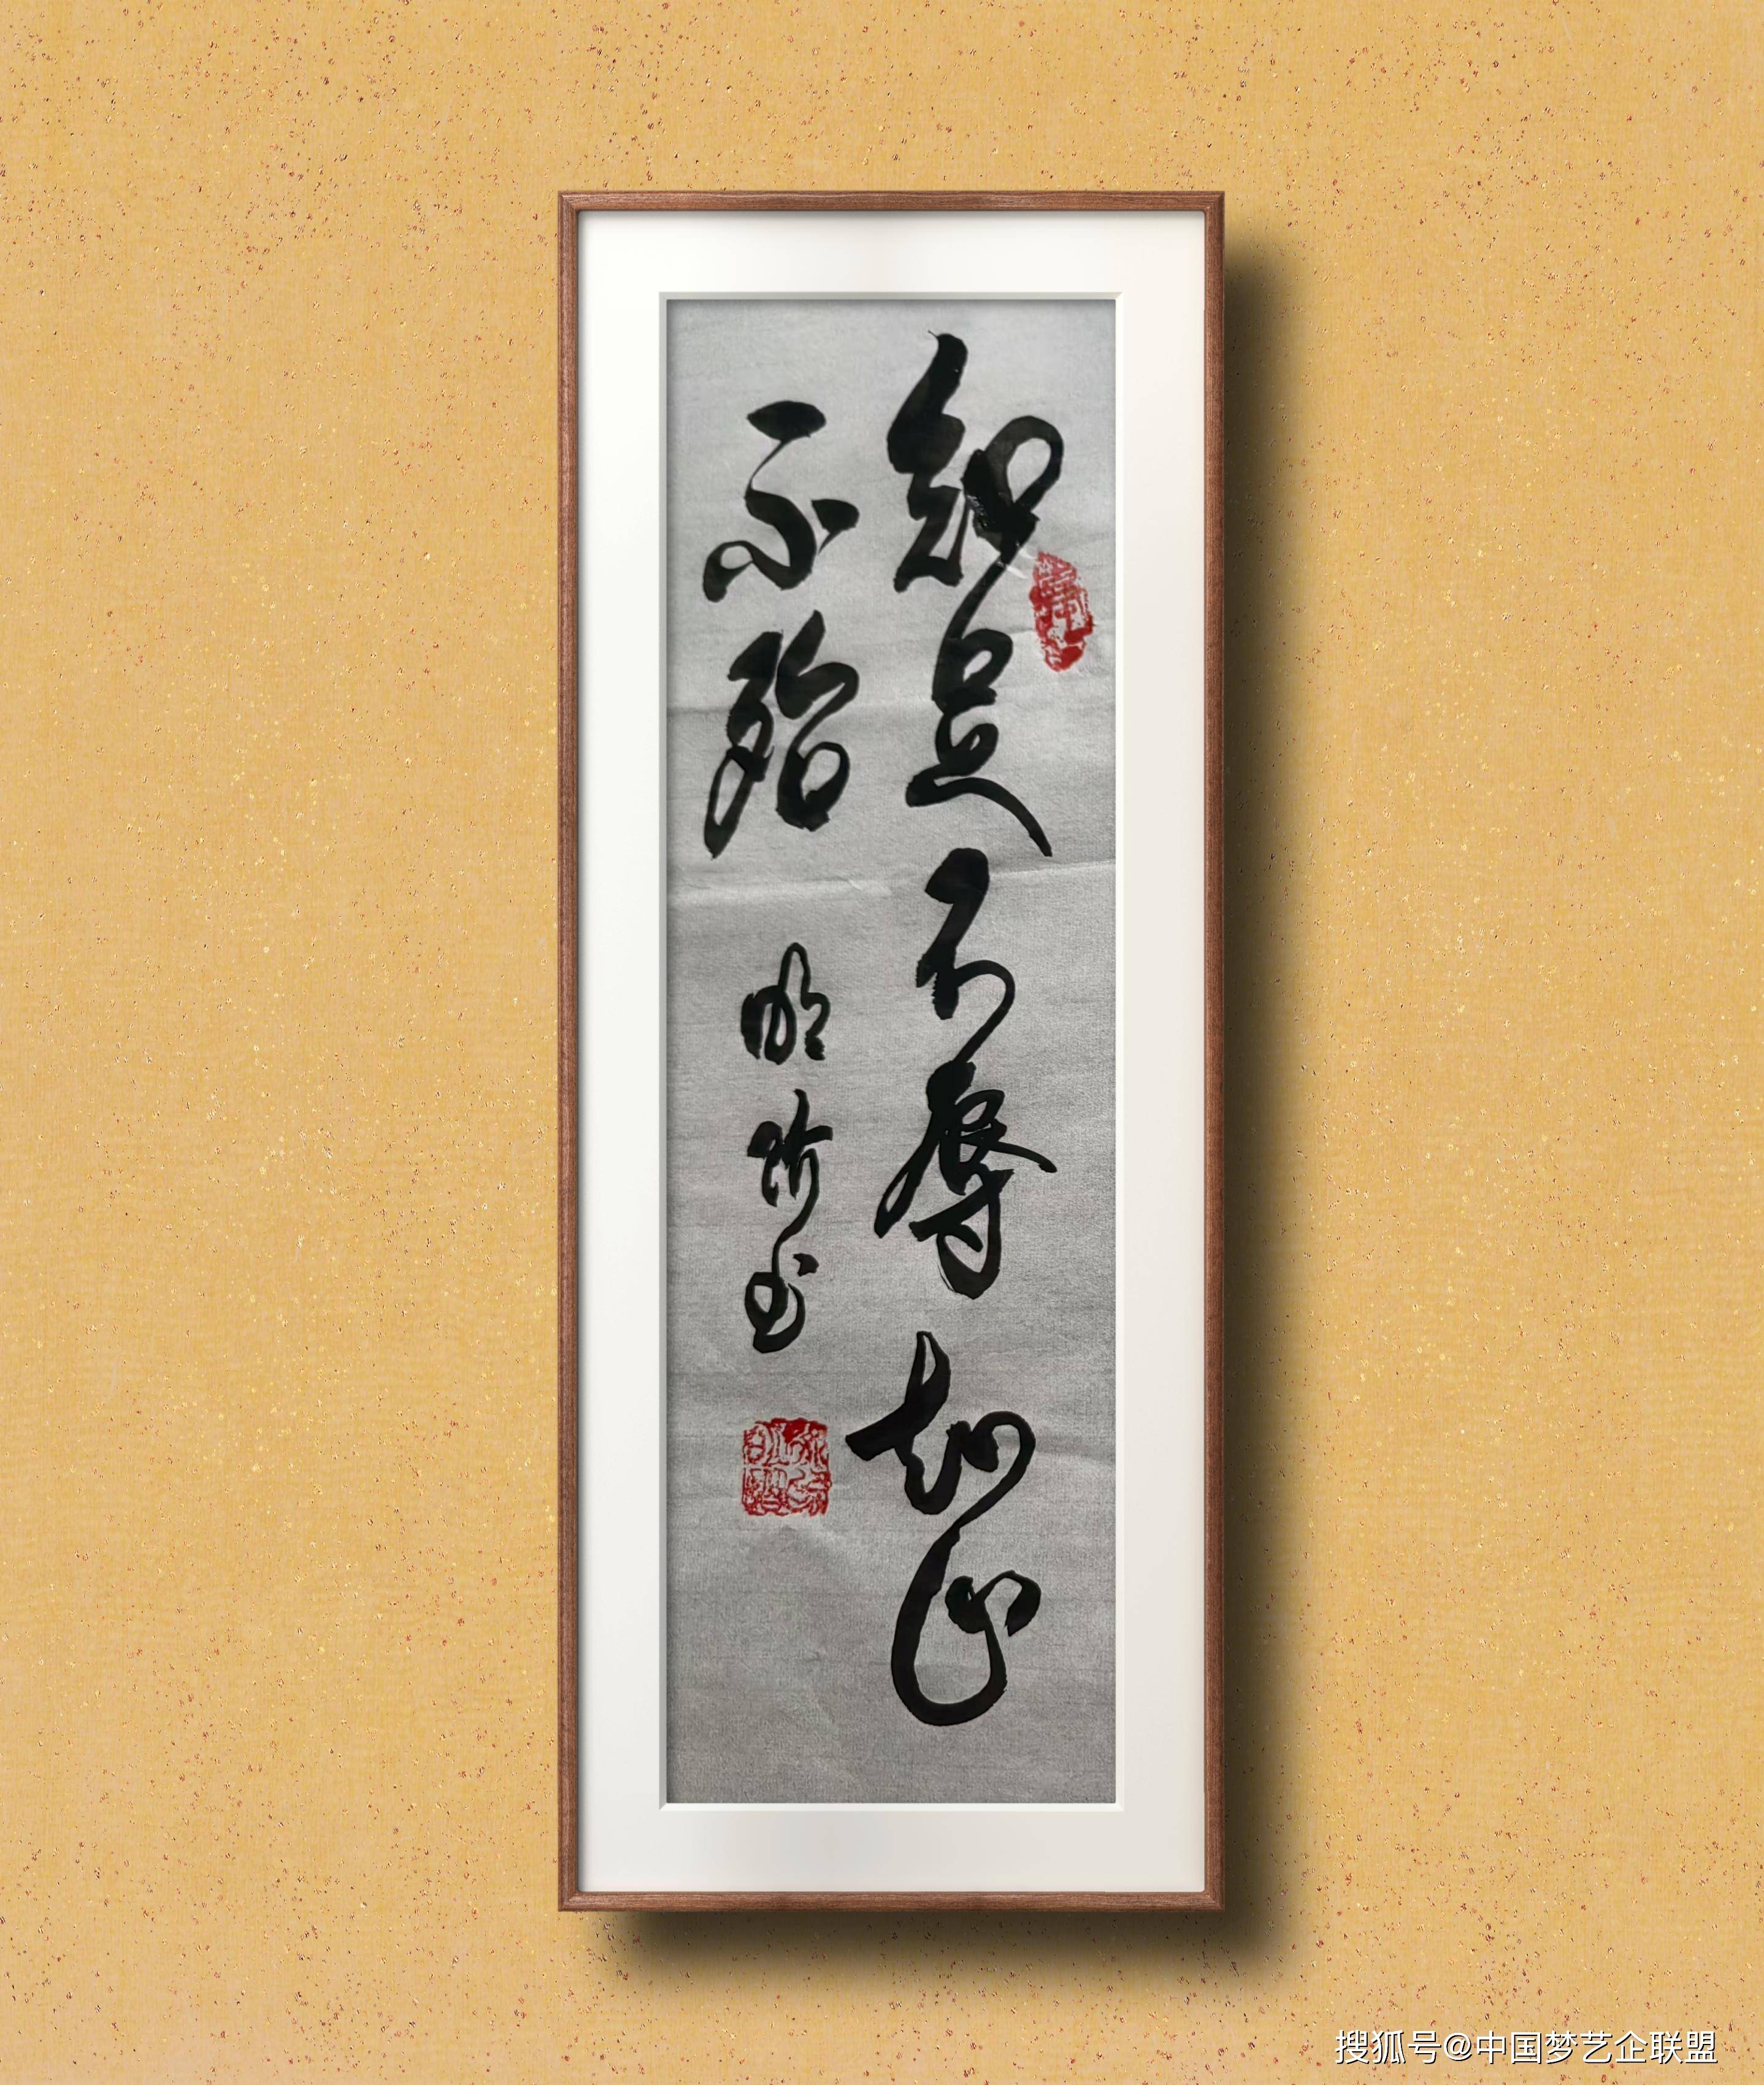 知足不辱知止
不殆
明 书
搜狐号@中国梦艺企联盟